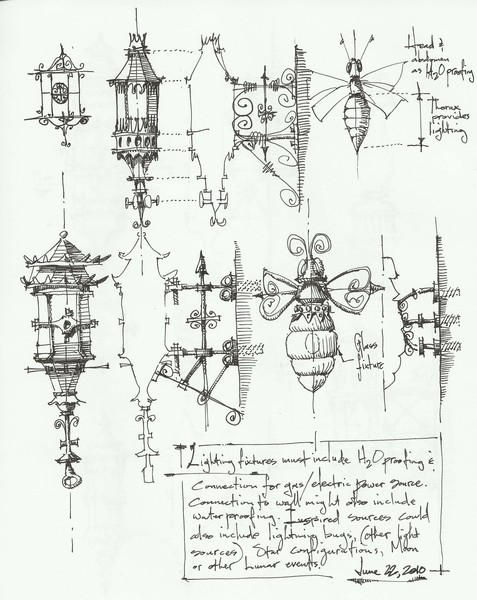 Head &
abdomen
as H2O proofing
Thorax
provides
lighting
Glass
fixture
Lighting fixtures must include H2O proofing &
Connection for gas/electric power source.
Connection to wall might also include
waterproofing. Inspired sources could
also include lightning bugs, (other light
sources) Star configurations, Moon
or other Lunar events.
June 22, 2010